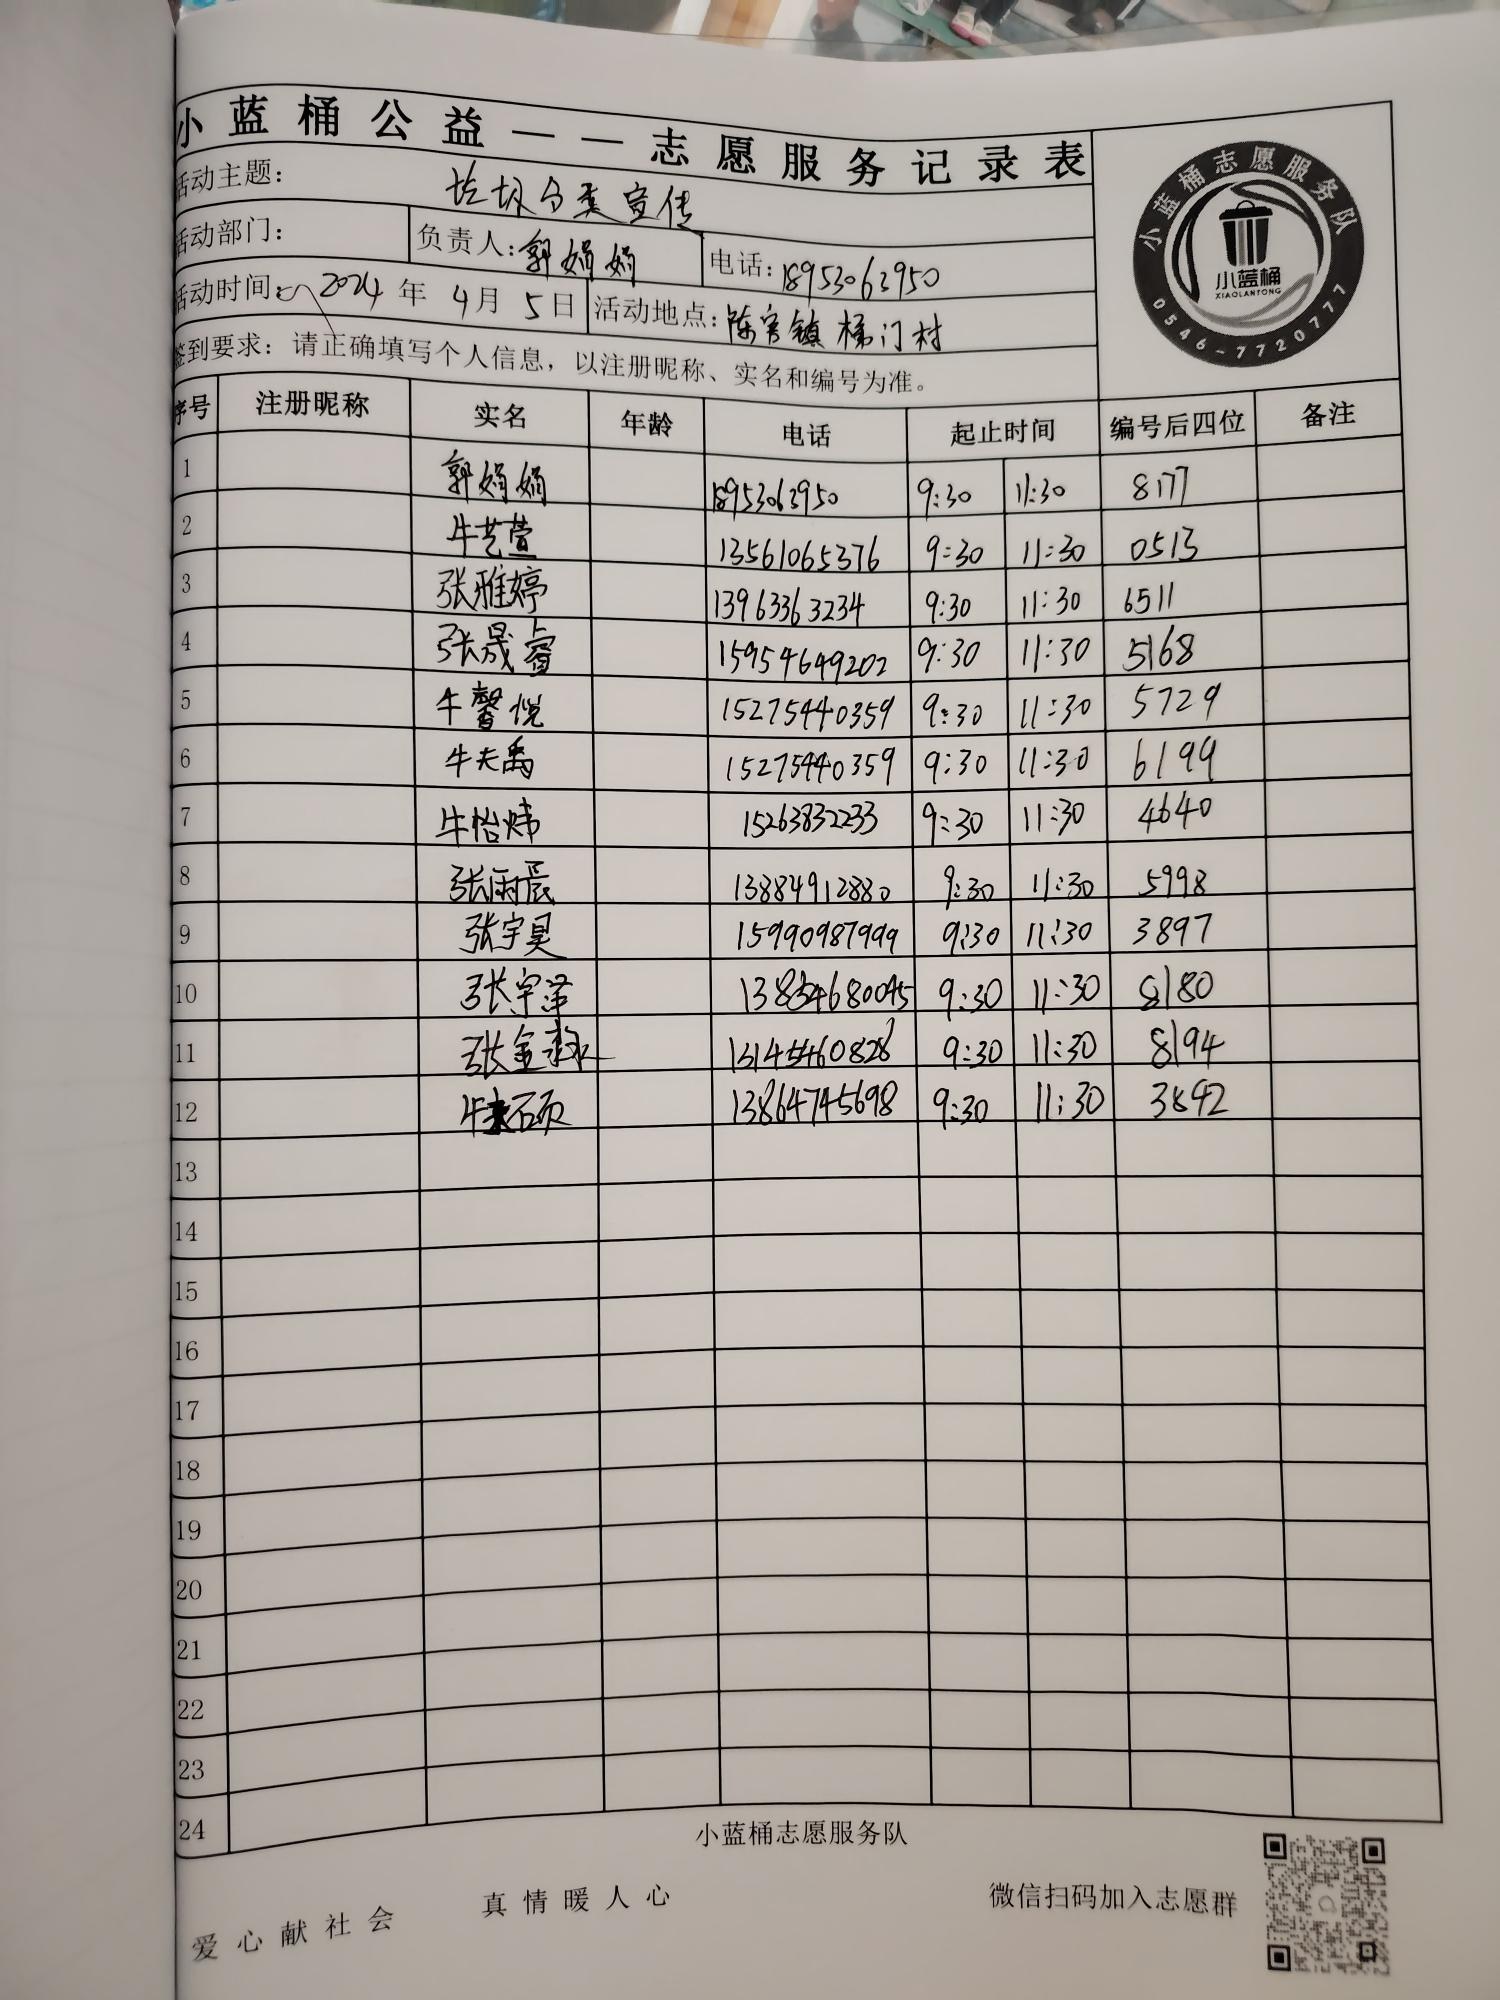 小蓝桶公益——志愿服务记录表
活动主题: 垃圾分类宣传
活动部门: 负责人: 郭娟娟 电话: 18953063950
活动时间: 2024年4月5日 活动地点: 陈官镇梯门村
签到要求: 请正确填写个人信息, 以注册昵称、实名和编号为准。
小蓝桶志愿服务队
小蓝桶
XIAOLANTONG
0546-7720777
序号 注册昵称 实名 年龄 电话 起止时间 编号后四位 备注
1 郭娟娟 18953063950 9:30 11:30 8177
2 牛艺萱 13561065376 9:30 11:30 0513
3 张雅婷 13963363234 9:30 11:30 6511
4 张晟睿 15954649202 9:30 11:30 5168
5 牛馨悦 15275440359 9:30 11:30 5729
6 牛夫禹 15275440359 9:30 11:30 6199
7 牛怡炜 15263832233 9:30 11:30 4640
8 张雨宸 13884912880 9:30 11:30 5998
9 张宇昊 15990987999 9:30 11:30 3897
10 张宇泽 9:30 11:30 8180
11 张金 13145460828 9:30 11:30 8194
12 牛硕 13864745698 9:30 11:30 3842
13
14
15
16
17
18
19
20
21
22
23
24
小蓝桶志愿服务队
爱心献社会 真情暖人心 微信扫码加入志愿群